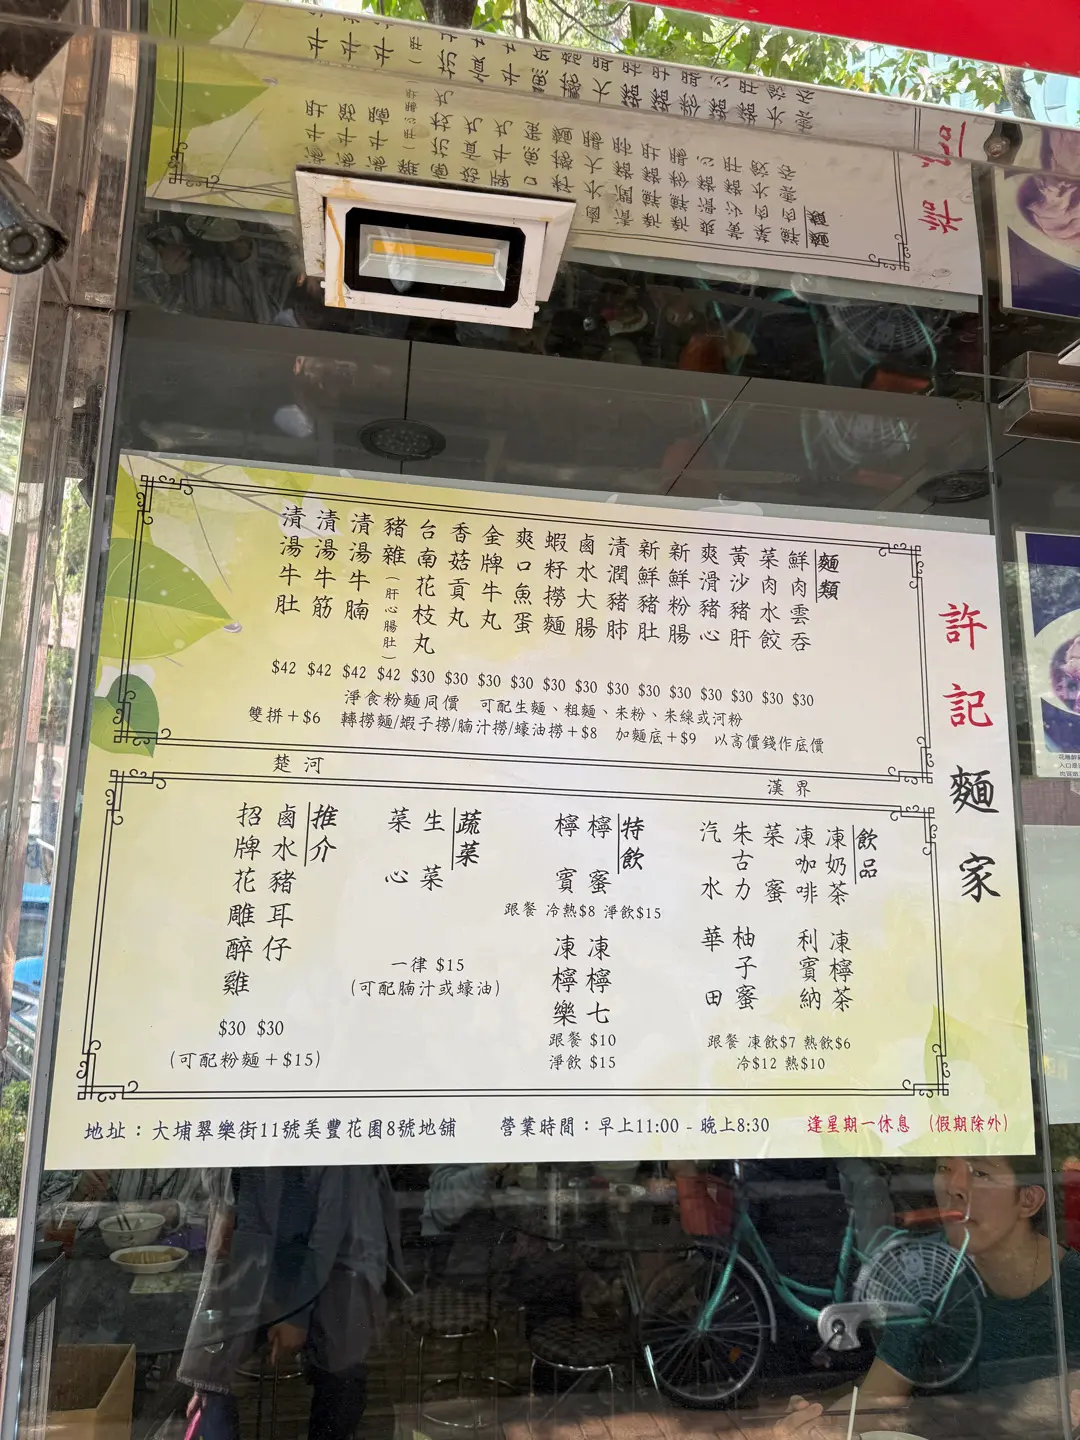 許記麵家
麵類
鮮肉雲吞 $30
菜肉水餃 $30
黃沙豬肝 $30
爽滑豬心 $30
新鮮粉腸 $30
新鮮豬肚 $30
清潤豬肺 $30
鹵水大腸 $30
蝦籽撈麵 $30
爽口魚蛋 $30
金牌牛丸 $30
香菇貢丸 $30
台南花枝丸 $30
豬雜(肝心腸肚) $42
清湯牛腩 $42
清湯牛筋 $42
清湯牛肚 $42
淨食粉麵同價 可配生麵、粗麵、米粉、米線或河粉
雙拼+$6 轉撈麵/蝦子撈/腩汁撈/蠔油撈+$8 加麵底+$9 以高價錢作底價
楚河 漢界
飲品
凍奶茶
凍咖啡
菜蜜
朱古力
汽水
凍檸茶
利賓納
柚子蜜
華田
跟餐 凍飲$7 熱飲$6
冷$12 熱$10
特飲
檸蜜
檸賓
跟餐 冷熱$8 淨飲$15
凍檸七
凍檸樂
跟餐 $10
淨飲 $15
蔬菜
生菜
菜心
一律 $15
(可配腩汁或蠔油)
推介
鹵水豬耳仔
招牌花雕醉雞
$30 $30
(可配粉麵+$15)
地址：大埔翠樂街11號美豐花園8號地舖 營業時間：早上11:00 - 晚上8:30 逢星期一休息 (假期除外)